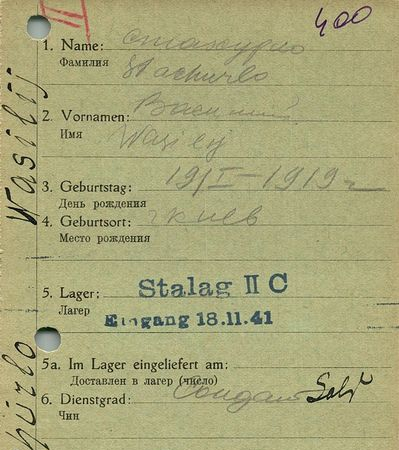 II
400
1. Name:
Фамилия
Stachurlo
2. Vornamen: Василий
Имя
Wasilij
3. Geburtstag: 19/I-1919 г
День рождения
4. Geburtsort: г Киев
Место рождения
5. Lager: Stalag II C
Лагер
Eingang 18.11.41
5a. Im Lager eingeliefert am:
Доставлен в лагер (число)
6. Dienstgrad: Солдат Sold
Чин
Wasilij